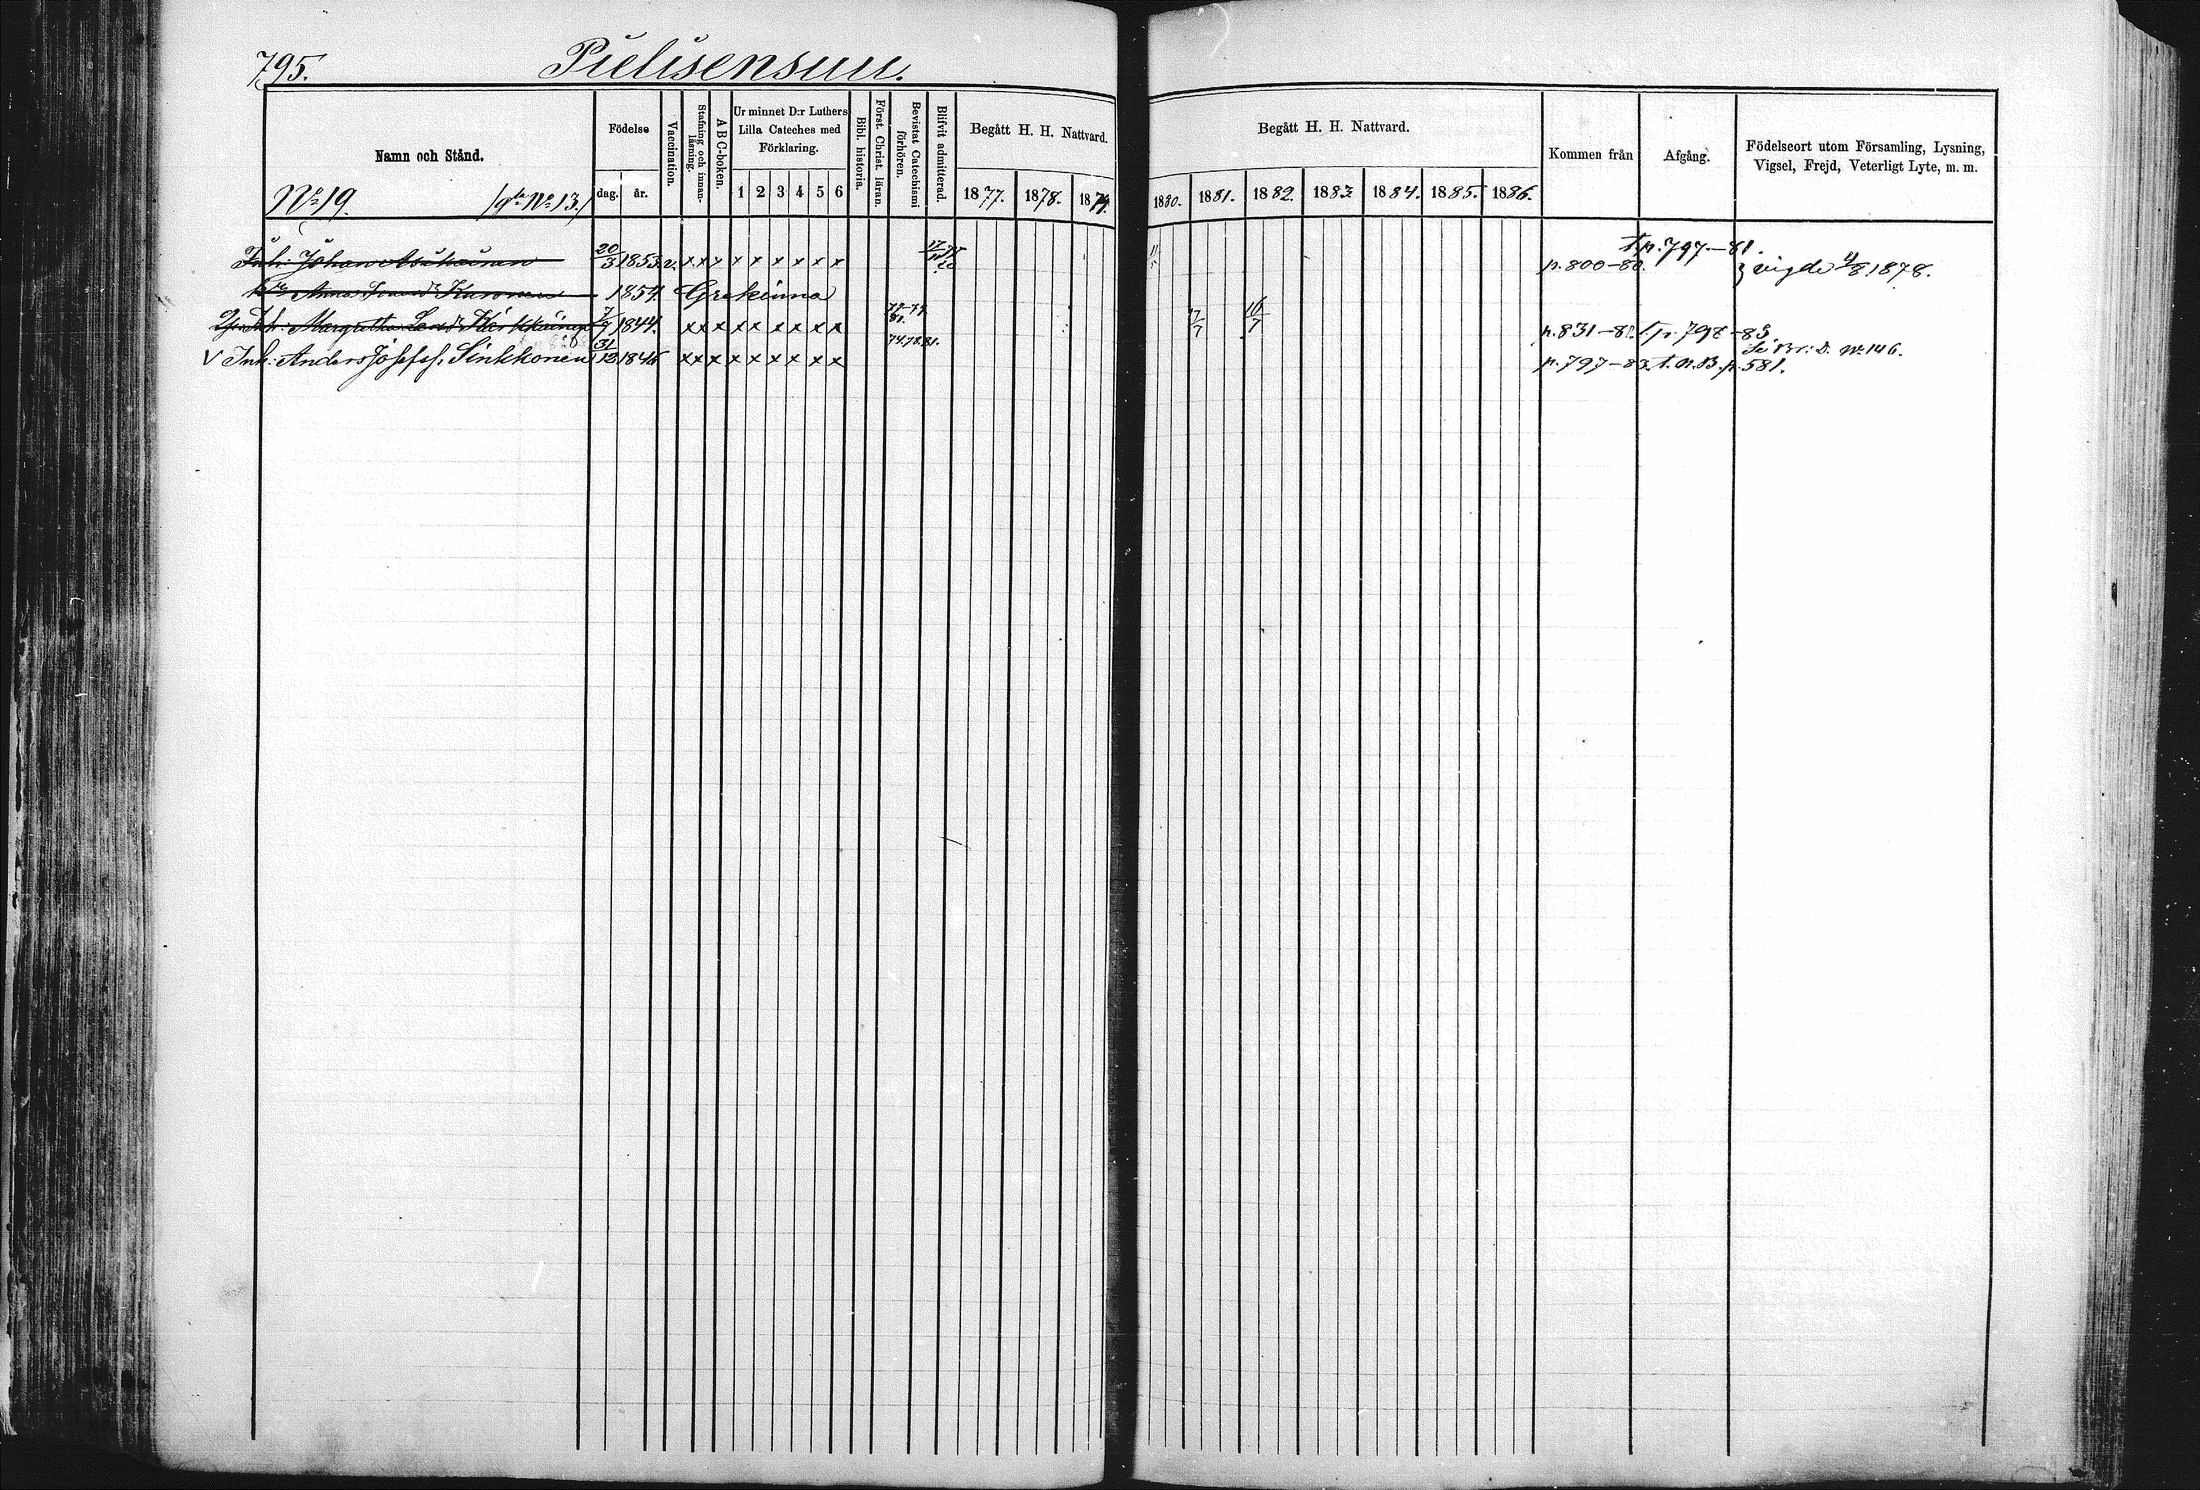 795.
Pielisensuu.
Namn och Stånd.
Födelse
dag.
år.
Vaccination.
Stafning och innanläsning.
A B C-boken.
Ur minnet D:r Luthers
Lilla Cateches med
Förklaring.
1 2 3 4 5 6
Bibl. historia.
Först. Christ. läran.
Bevistat Catechismi
förhören.
Blifvit admitterad.
Begått H. H. Nattvard.
1877. 1878. 1879.
Begått H. H. Nattvard.
1880. 1881. 1882. 1883. 1884. 1885. 1886.
Kommen från
Afgång.
Födelseort utom Församling, Lysning,
Vigsel, Frejd, Veterligt Lyte, m. m.
No 19. No 13.
Inh: Johan Asikainen 20/3 1853 v. x x x x x x x x x p. 800-80. t. p. 797-81. vigde 4/8 1878.
Anna Kuronen 1857. Grekinna
Inh: Margretha Kärkkäinen 7/7 1844. x x x x x x x x x 7/7 16/7 p. 831-81. t. p. 798-83.
74,78,81. Se Br: D. No 146.
v Inh: Anders Josefss. Sinkkonen 31/12 1846 x x x x x x x x x p. 797-83. t. N.B. p. 581.